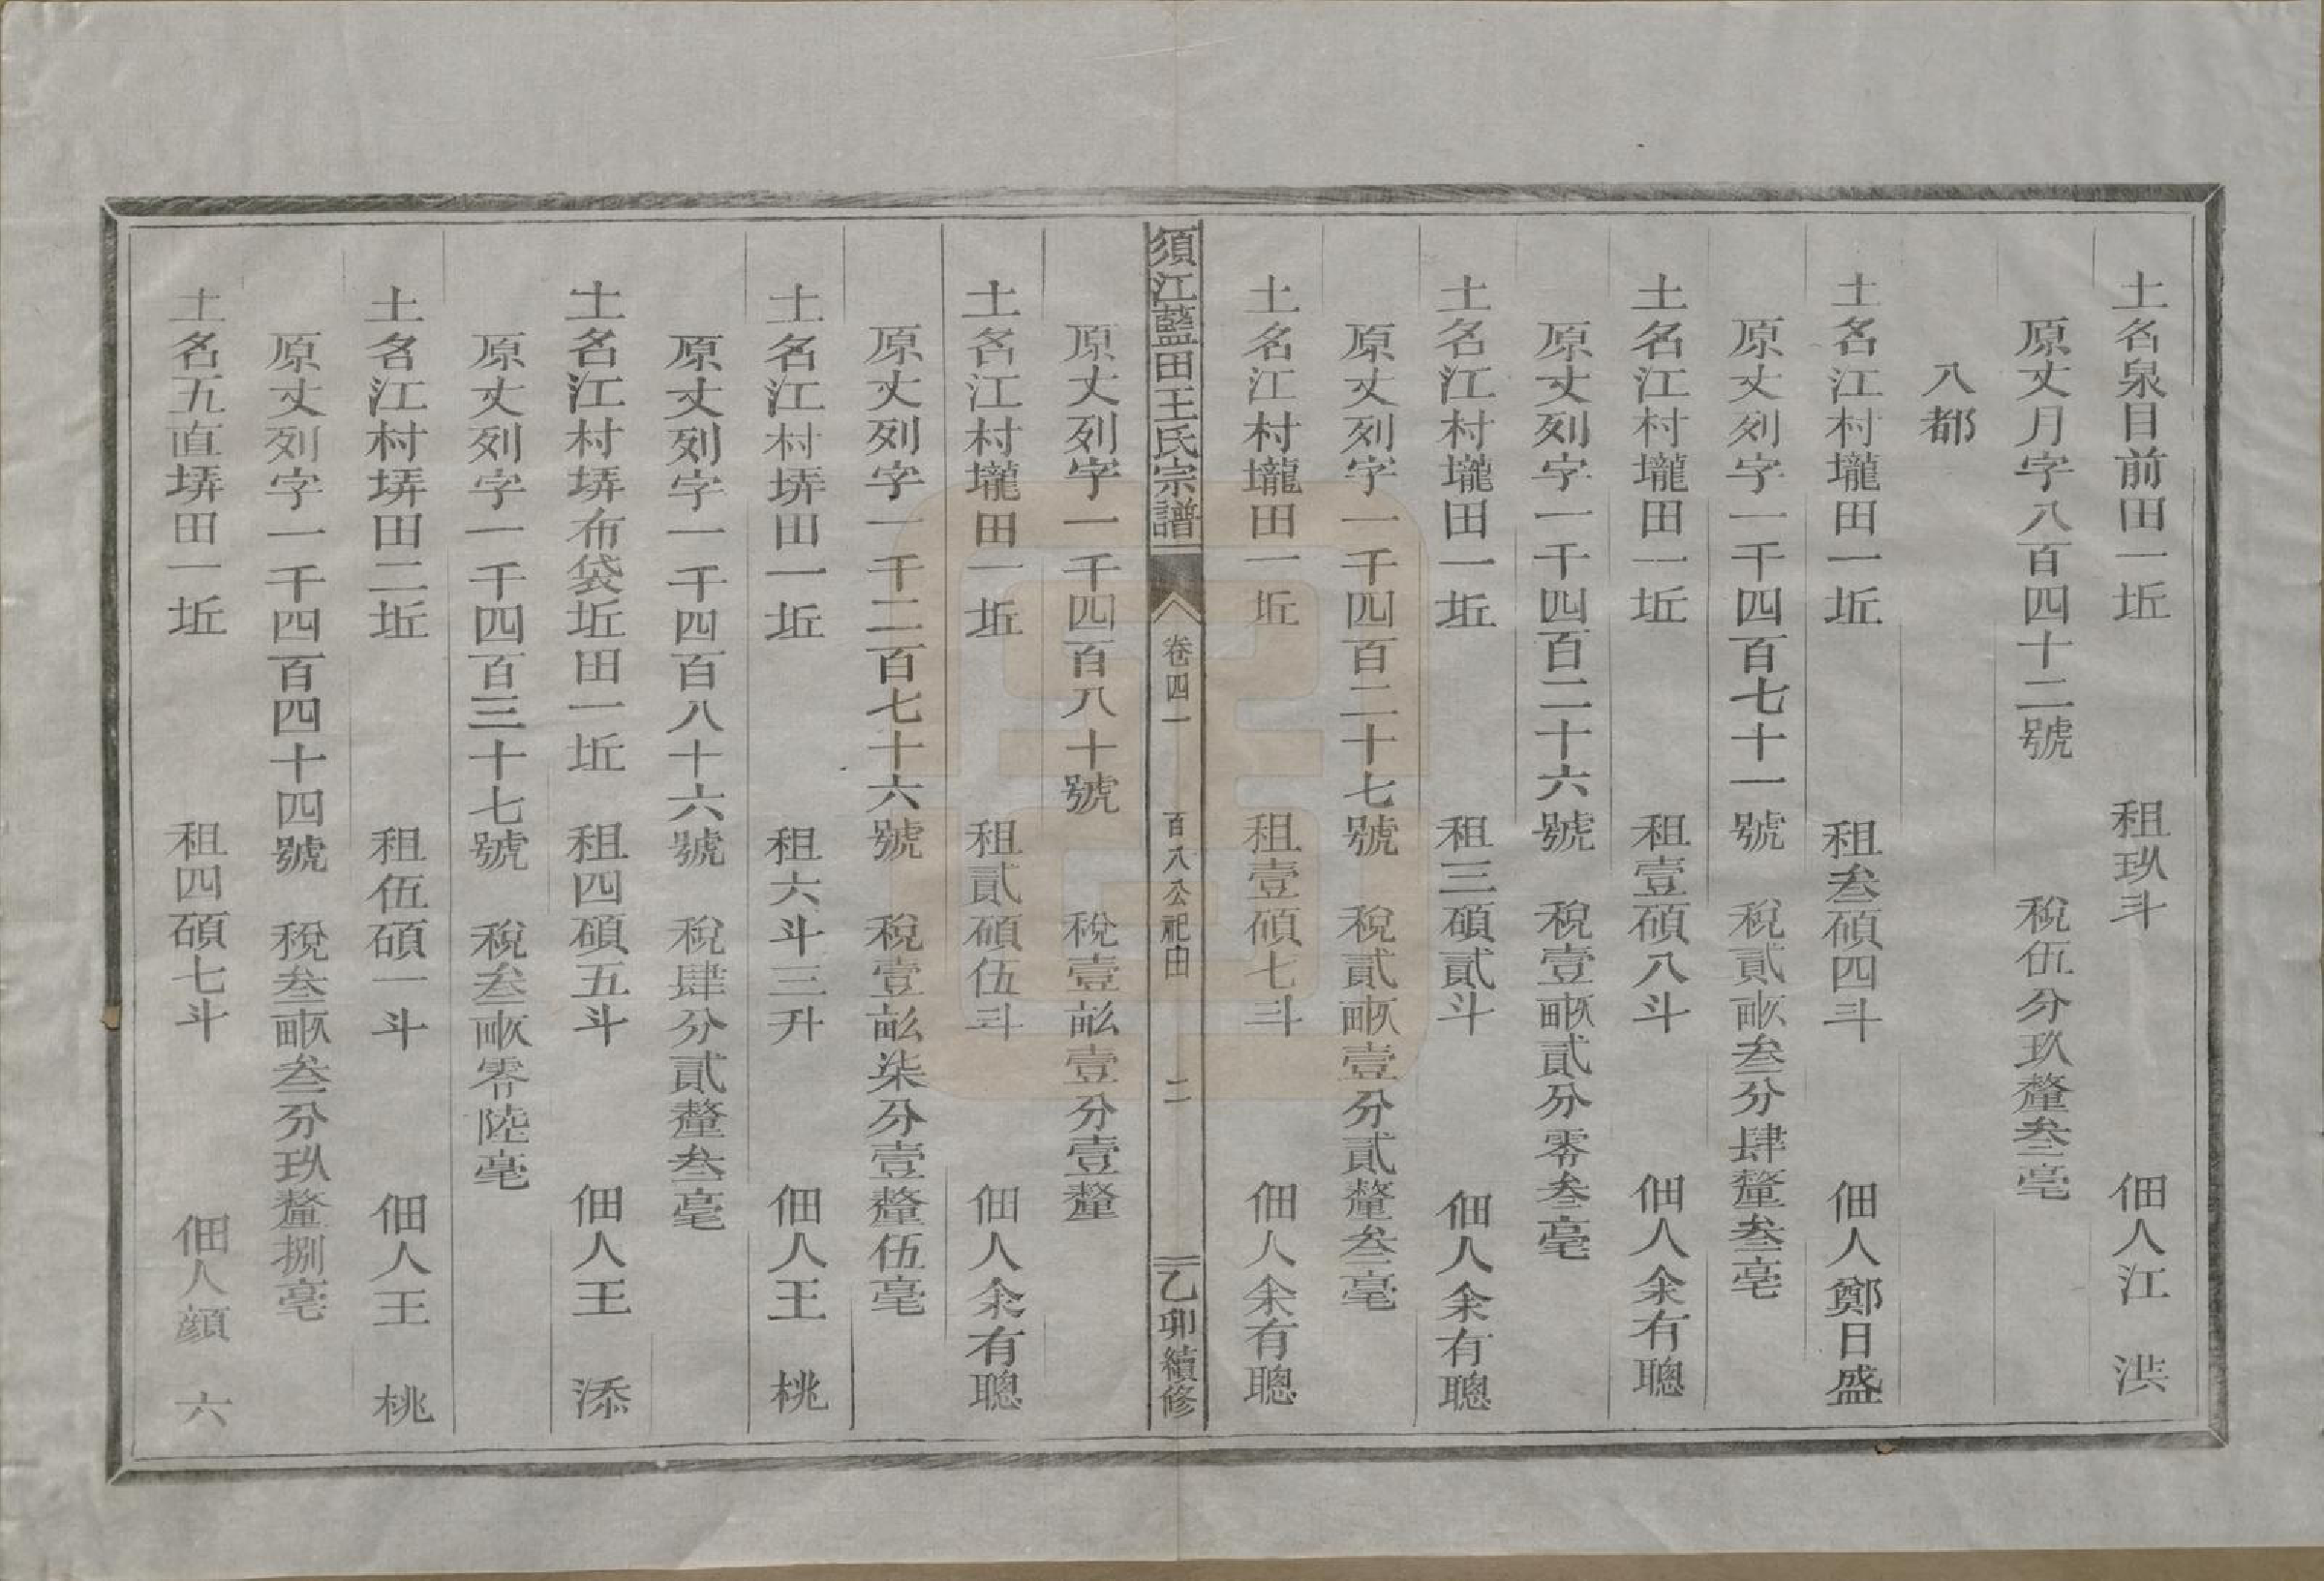 土名泉目前田一坵　租玖斗　佃人江　洪
原丈月字八百四十二號　稅伍分玖釐叁毫
八都
土名江村壠田一坵　租叁碩四斗　佃人鄭日盛
原丈列字一千四百七十一號　稅貳畝叁分肆釐叁毫
土名江村壠田一坵　租壹碩八斗　佃人余有聰
原丈列字一千四百二十六號　稅壹畝貳分零叁毫
土名江村壠田一坵　租三碩貳斗　佃人余有聰
原丈列字一千四百二十七號　稅貳畝壹分貳釐叁毫
土名江村壠田一坵　租壹碩七斗　佃人余有聰
須江藍田王氏宗譜　卷四一　百八公祀田　二　乙卯續修
原丈列字一千四百八十號　稅壹畝壹分壹釐
土名江村壠田一坵　租貳碩伍斗　佃人余有聰
原丈列字一千二百七十六號　稅壹畝柒分壹釐伍毫
土名江村塝田一坵　租六斗三升　佃人王　桃
原丈列字一千四百八十六號　稅肆分貳釐叁毫
土名江村塝布袋坵田一坵　租四碩五斗　佃人王　添
原丈列字一千四百三十七號　稅叁畝零陸毫
土名江村塝田二坵　租伍碩一斗　佃人王　桃
原丈列字一千四百四十四號　稅叁畝叁分玖釐捌毫
土名五直塝田一坵　租四碩七斗　佃人顔　六